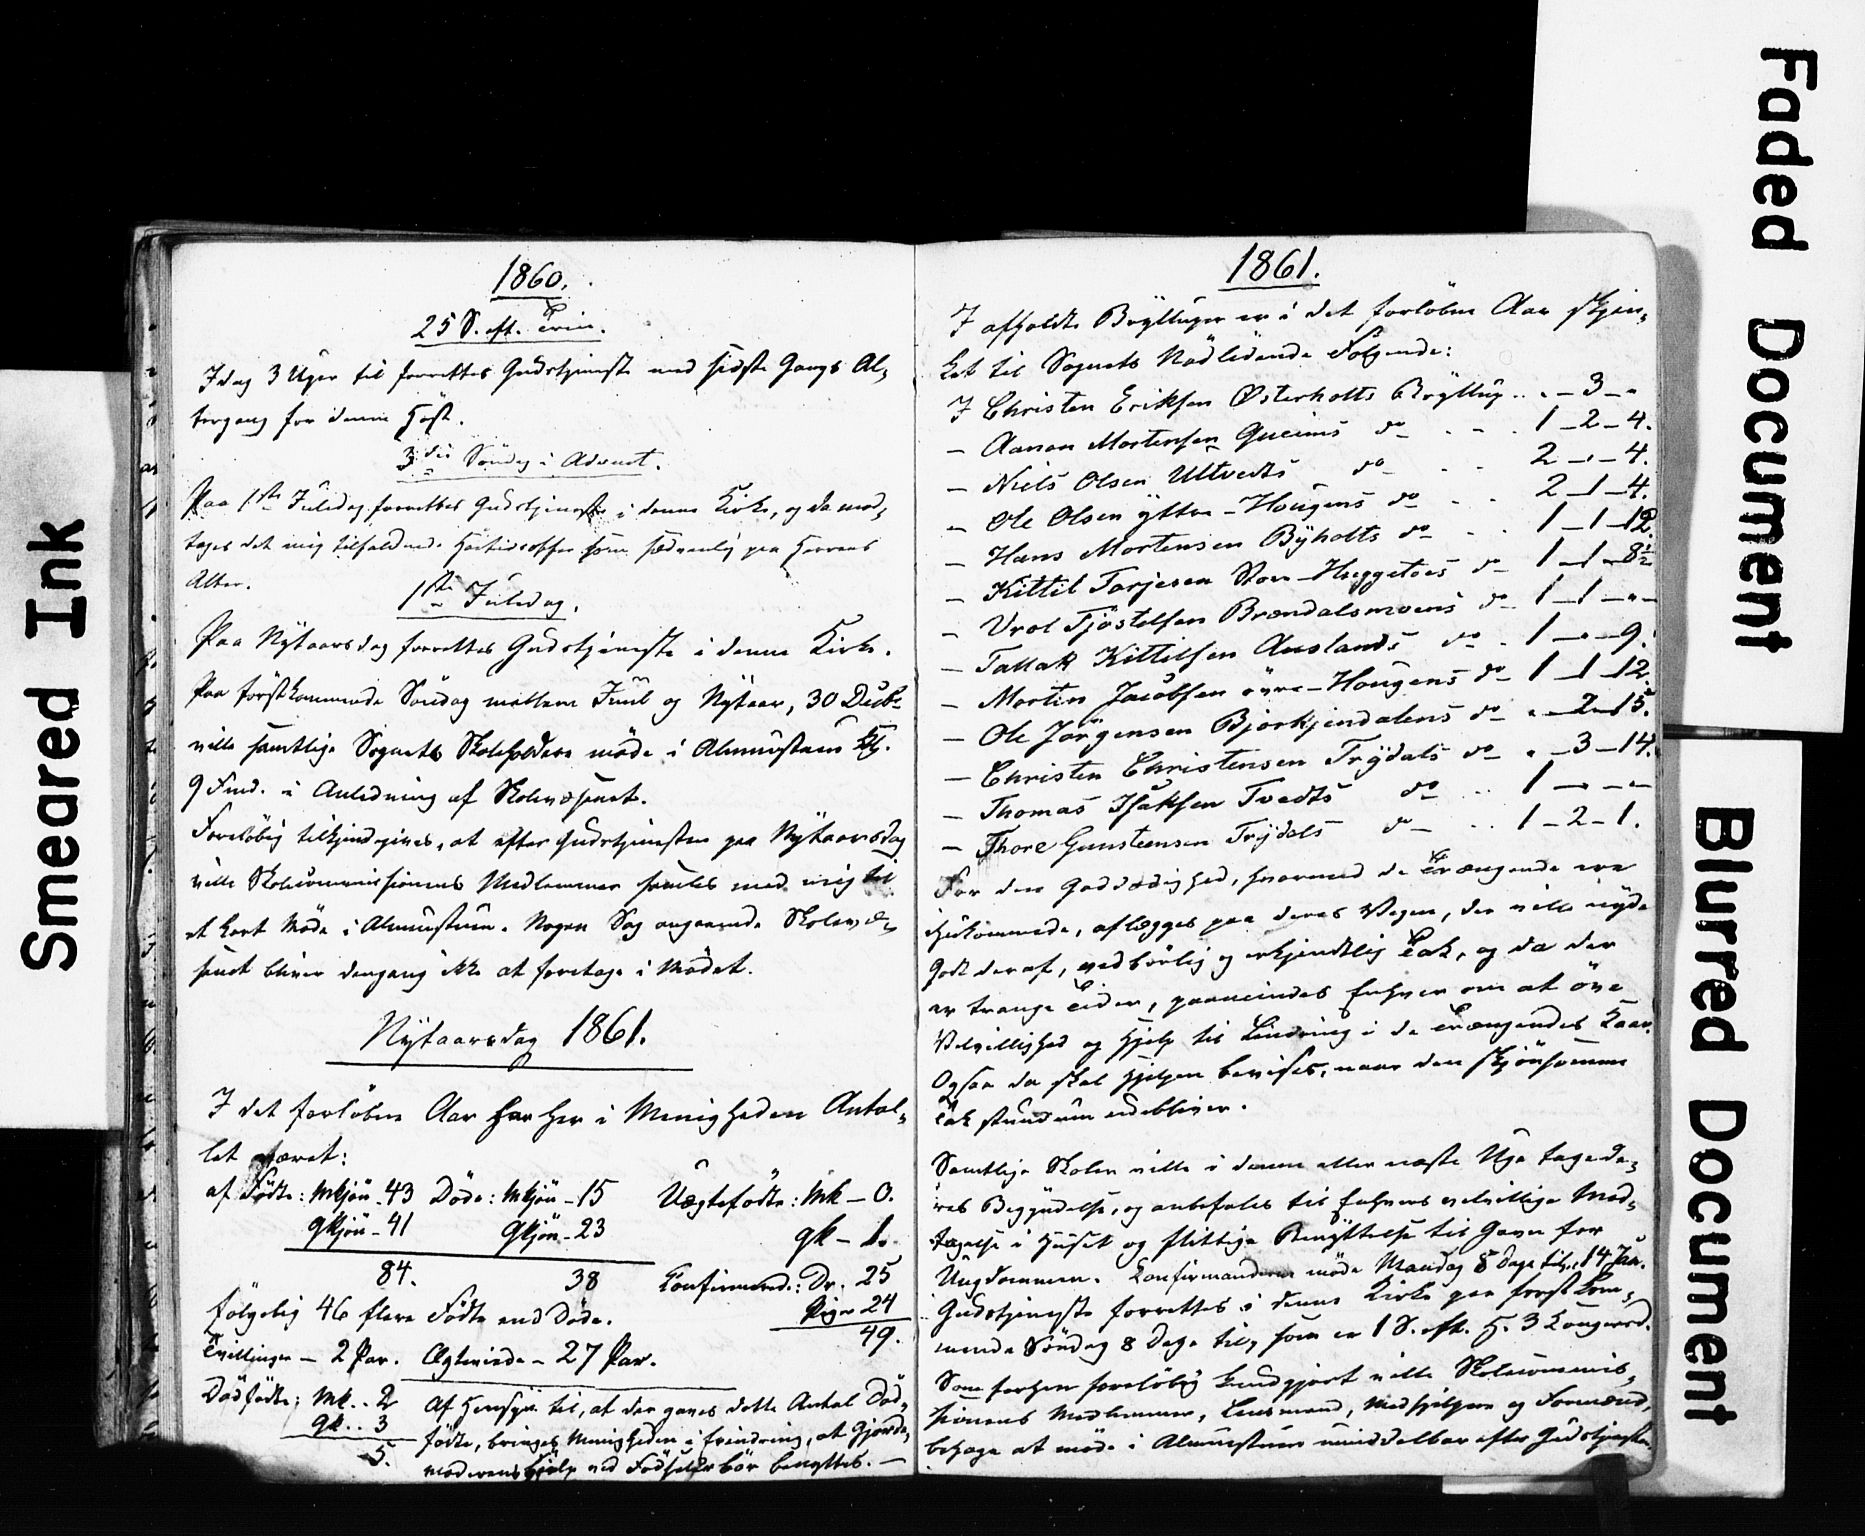 Smeared Ink
Faded Document
Blurred Document
1860.
25 S. eft. Trin.
Idag 3 Uger til forrettes Gudstjeneste med sidste Gangs Al,
tergang for denne Høst.
3die Søndag i Advent.
Paa 1ste Juledag forrettes Gudstjeneste i denne Kirke, og da mod,
tages det mig tilfaldende Høitidsoffer som sædvanlig paa Herrens
Alter.
1ste Juledag.
Paa Nytaarsdag forrettes Gudstjeneste i denne Kirke.
Paa førstkommende Søndag mellem Juul og Nytaar, 30 Decbr
ville samtlige Sognets Skoleholdere møde i Almuestuen Kl.
9 Fmd. i Anledning af Skolevæsenet.
Foreløbig tilkjendegives, at efter Gudstjenesten paa Nytaarsdag
ville Skolecommissionens Medlemmer samles med mig til
et kort Møde i Almuestuen. Nogen Sag angaaende Skolevæ,
senet bliver dengang ikke at foretage i Mødet.
Nytaarsdag 1861.
I det forløbne Aar har her i Menigheden Antal,
let været:
af Fødte: Mkjøn - 43 Døde: Mkjøn - 15 Uægtefødte: Mk - 0.
Qkjøn - 41 Qkjøn - 23 Qk - 1.
84. 38 Confirmerd.: Dr. 25
følgelig 46 flere Fødte end Døde. Piger 24
Tvillinger - 2 Par. Ægteviede - 27 Par. 49.
Dødfødte: Mk. . 2 Af Hensyn til, at der gaves dette Antal Død,
Qk. . 3 fødte, bringes Menigheden i Erindring, at Gjorde,
5. moderens Hjelp ved Fødseler bør benyttes. —
1861.
I afholdte Bryllupper er i det forløbne Aar skjen,
ket til Sognets Nødlidende Følgende:
I Christen Eriksen Østerholts Bryllup . . „ - 3 - „
— Aanon Mortensen Gueims do - . 1 - 2 - 4.
— Niels Olsen Ultvedts do - - 2 - „ - 4.
— Ole Olsen yttre - Hougens do - . 2 - 1 - 4.
— Hans Mortensen Byholts do - . 1 - 1 - 12.
— Kittil Tarjesen Store - Huggetoes do - 1 - 1 - 8½
— Vrol Tjøstelsen Brændalsmoens do - 1 - 1 - „ -
— Tallak Kittilsen Auslands do - 1 - „ - 9.
— Morten Jacobsen øvre - Hougens do - 1 - 1 - 12.
— Ole Jørgensen Bjorkjendalens do - „ - 2 - 15.
— Christen Christensen Trydals do - „ - 3 - 14.
— Thomas Isaksen Tvedts do . . 1 - „ - -
— Thore Gunsteensen Trydals do - . . 1 - 2 - 1.
For den Godgjørighed, hvormed de Trængende ere
ihukommede, aflægges paa deres Vegne, der ville nyde
Godt deraf, vedbørlig og erkjendtlig Tak, og da der
er trange Tider, paamindes Enhver om at øve
Velvillighed og Hjelp til Lindring i de Trængendes Kaar.
Ogsaa da skal Hjelpen bevises, naar den skjønsomme
Tak stundom udebliver.
Samtlige Skoler ville i denne eller næste Uge tage de,
res Begyndelse, og anbefales til Enhvers velvillige Mod,
tagelse i Huset og flittige Benyttelse til Gavn for
Ungdommen. Confirmanderne møde Mandag 8 Dage til, 14 Jan.
Gudstjeneste forrettes i denne Kirke paa førstkom,
mende Søndag 8 Dage til, som er 1 S. eft. H. 3 Kongersd.
Som forhen foreløbig kundgjort ville Skolecommis,
sionens Medlemmer, Lensmand, Medhjelpere og Formænd,
behage at møde i Almuestuen umiddelbar efter Gudstjenesten.